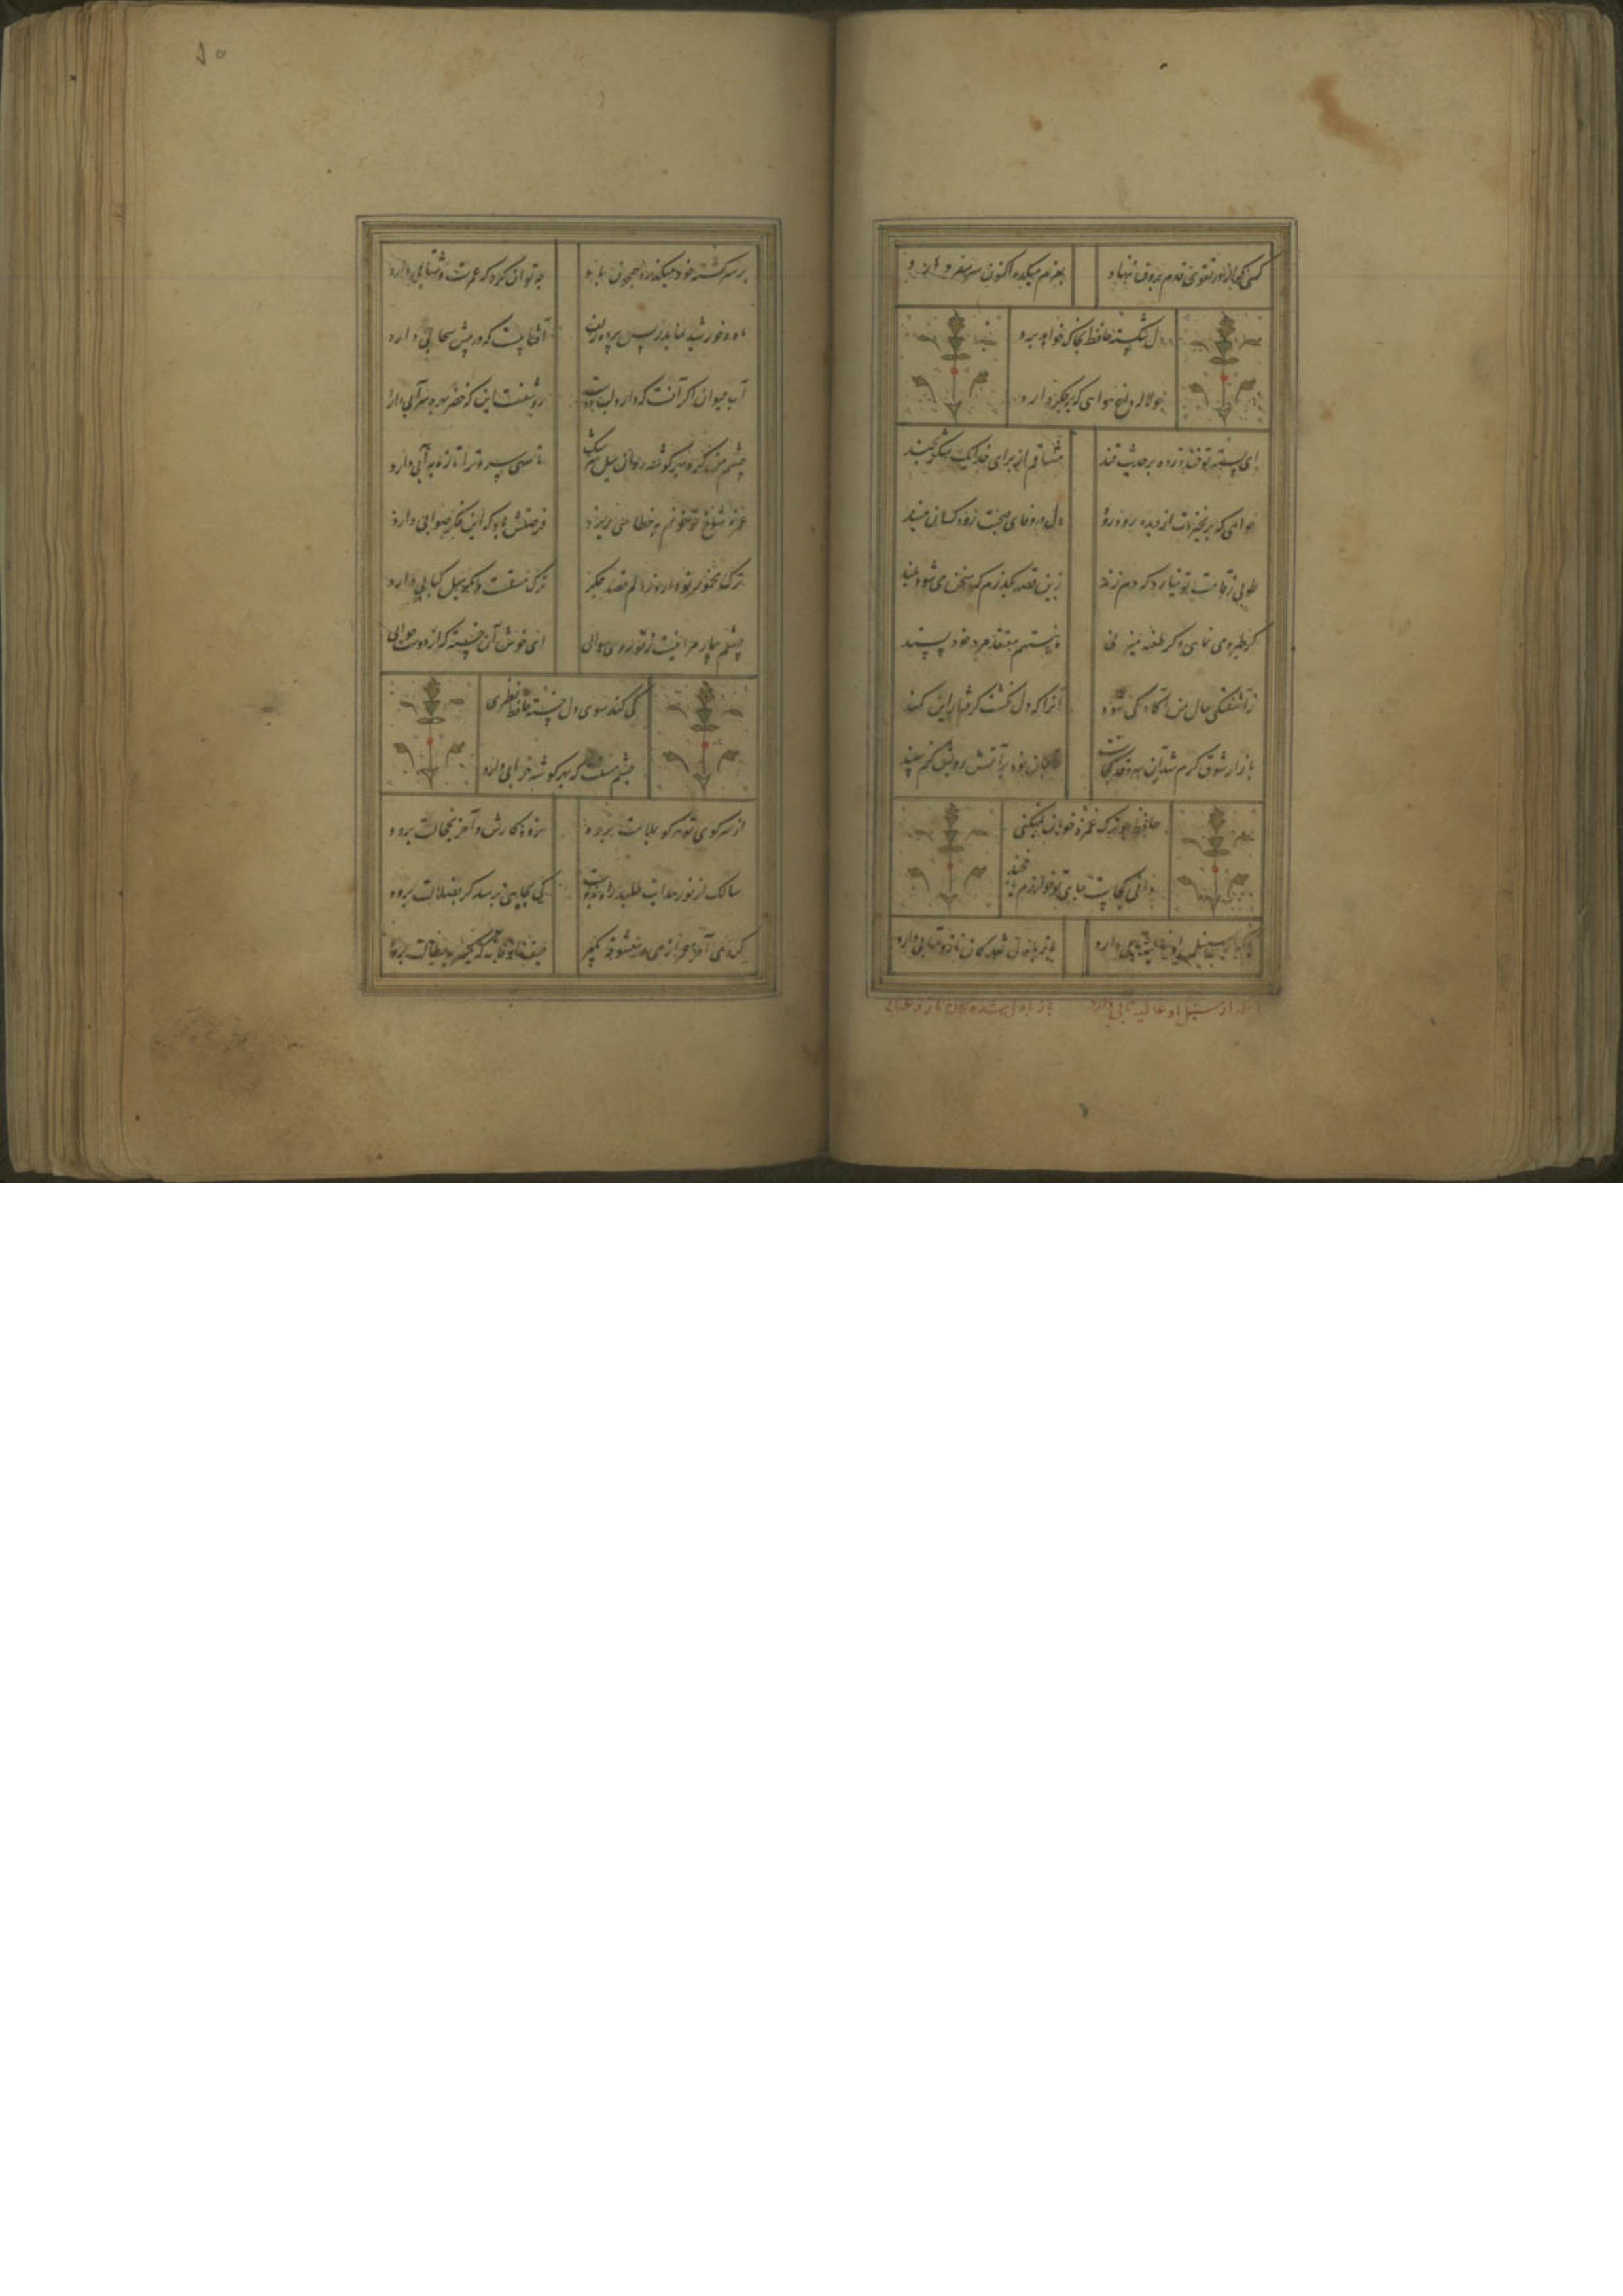 کسی که از ره تقوی قدم برون ننهاد
بعزم میکده اکنون سر سفر دارد
دل شکسته حافظ بخاک خواهد برد
چو لاله داغ هوایی که بر جگر دارد
ای پسته تو خنده زده بر حدیث قند
مشتاقم از برای خدا یک شکر بخند
خواهی که بر نخیزدت از دیده رود رود
دل در وفای صحبت رود کسان مبند
طوبی ز قامت تو نیارد که دم زند
زین قصه بگذرم که سخن می شود بلند
کر طیره می نمایی و کر طعنه میزنی
ما نیستیم معتقد مرد خود پسند
ز آشفتگی حال من آگاه کی شود
آنرا که دل نکشت گرفتار این کمند
بازار شوق گرم شد آن سرو قد کجاست
تا جان خود بر آتش رویش کنم سپند
حافظ چو ترک غمزه خوبان نمیکنی
دانی کجاست جای تو خوارزم یا خجند
دارد
باز با دل شدگان ناز و عتابی دارد
آنکه از سنبل او غالیه تابی دارد
باز با دل شدگان ناز و عتابی
۸۵
بر سر کشته خود میگذرد همچون باد
چه توان کرد که عمرست و شتابی دارد
ماه خورشید نمایش ز پس پرده زلف
آفتابیست که در پیش سحابی دارد
آب حیوان اگر آنست که دارد لب دوست
روشنست این که خضر بهره سرابی دارد
چشم من کرد بهر گوشه روان سیل سرشک
تا سهی سرو ترا تازه به آبی دارد
غمزه شوخ تو خونم به خطا می ریزد
فرصتش باد که این فکر صوابی دارد
ترک مخمور تو دارد ز دلم قصد جگر
ترک مستست مگر میل کبابی دارد
چشم بیمار مرا نیست ز تو روی سوال
ای خوش آن خسته که از دوست جوابی
کی کند سوی دل خسته حافظ نظری
چشم مستت که بهر گوشه خرابی دارد
از سر کوی تو هر کو بملامت برود
نرود کارش و آخر بخجالت برود
سالک از نور هدایت طلبد راه بدوست
که بجایی نرسد گر بضلالت برود
کام آخر عمر از می و معشوقه بگیر
حیف اوقات که یکسر به بطالت برود